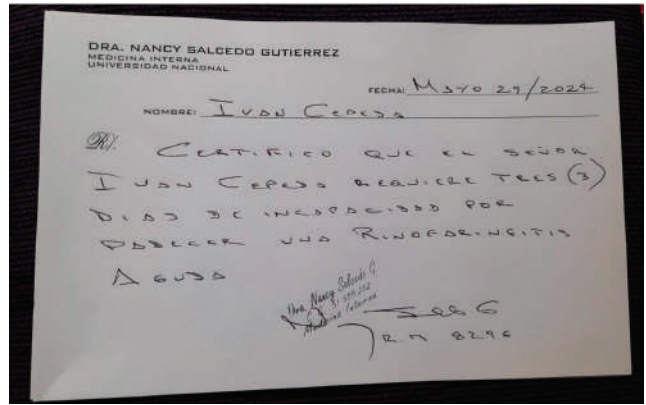 DRA. NANCY SALCEDO GUTIERREZ
MEDICINA INTERNA
UNIVERSIDAD NACIONAL
FECHA: MAYO 29/2024
NOMBRE: IVAN CEPEDA
R/. CERTIFICO QUE EL SEÑOR
IVAN CEPEDA REQUIERE TRES (3)
DIAS DE INCAPACIDAD POR
PADECER UNA RINOFARINGITIS
AGUDA
Dra. Nancy Salcedo G.
Medicina Interna
R.M 8296